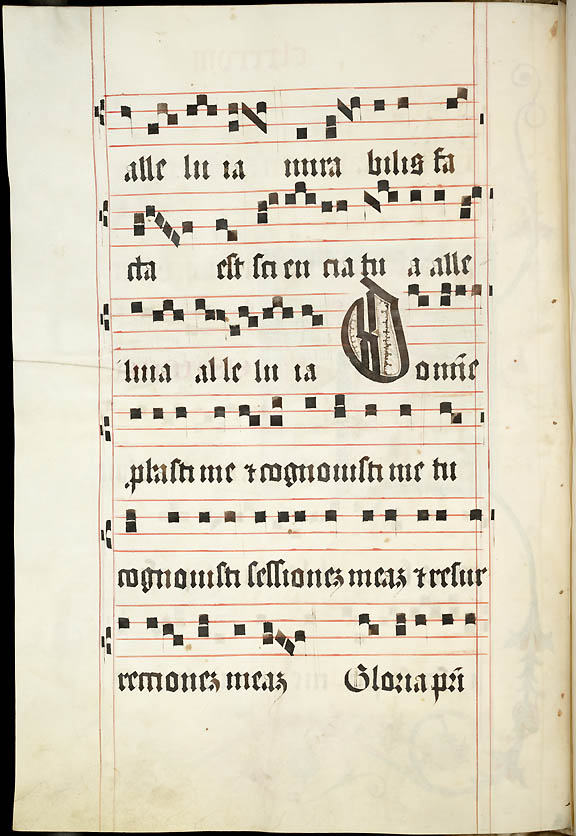 alle lu ia mira bilis fa
cta est sci en cia tu a alle
luia al le lu ia Domie
plasti me ⁊ cognouisti me tu
cognouisti sessionez meaz ⁊ resur
rectionez meaz Gloria pri